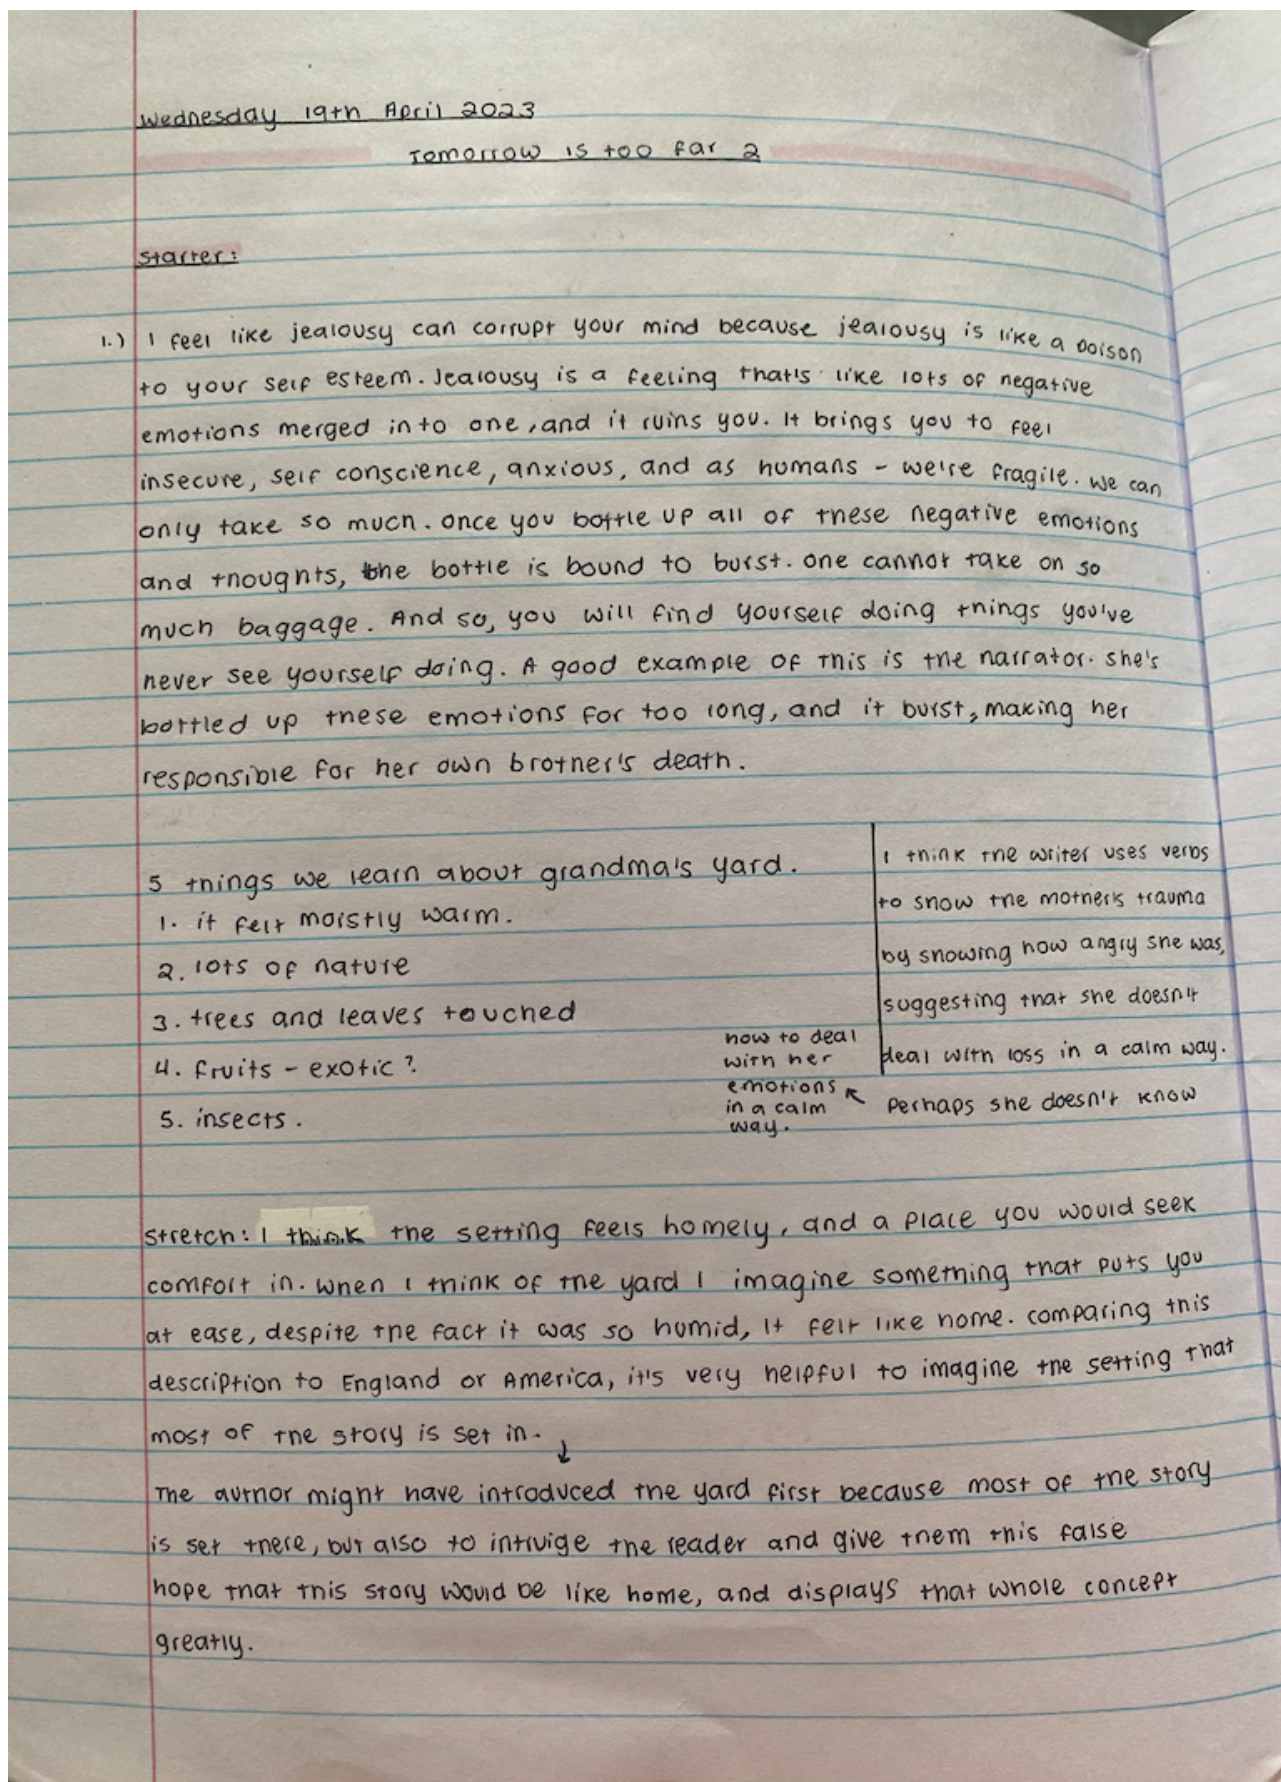 Wednesday 19th April 2023
Tomorrow is too far 2
Starter:
1.) I feel like jealousy can corrupt your mind because jealousy is like a poison
to your self esteem. Jealousy is a feeling that's like lots of negative
emotions merged into one, and it ruins you. It brings you to feel
insecure, self conscience, anxious, and as humans - we're fragile. we can
only take so much. once you bottle up all of these negative emotions
and thoughts, the bottle is bound to burst. one cannot take on so
much baggage. And so, you will find yourself doing things you've
never see yourself doing. A good example of this is the narrator. she's
bottled up these emotions for too long, and it burst, making her
responsible for her own brother's death.
5 things we learn about grandma's yard.
1. it felt moistly warm.
2. lots of nature
3. trees and leaves touched
4. fruits - exotic?
5. insects.
I think the writer uses verbs
to show the mother's trauma
by showing how angry she was,
suggesting that she doesn't
deal with loss in a calm way.
Perhaps she doesn't know
how to deal
with her
emotions
in a calm
way.
Stretch: I think the setting feels homely, and a place you would seek
comfort in. when I think of the yard I imagine something that puts you
at ease, despite the fact it was so humid, it felt like home. comparing this
description to England or America, it's very helpful to imagine the setting that
most of the story is set in.
The author might have introduced the yard first because most of the story
is set there, but also to intruige the reader and give them this false
hope that this story would be like home, and displays that whole concept
greatly.